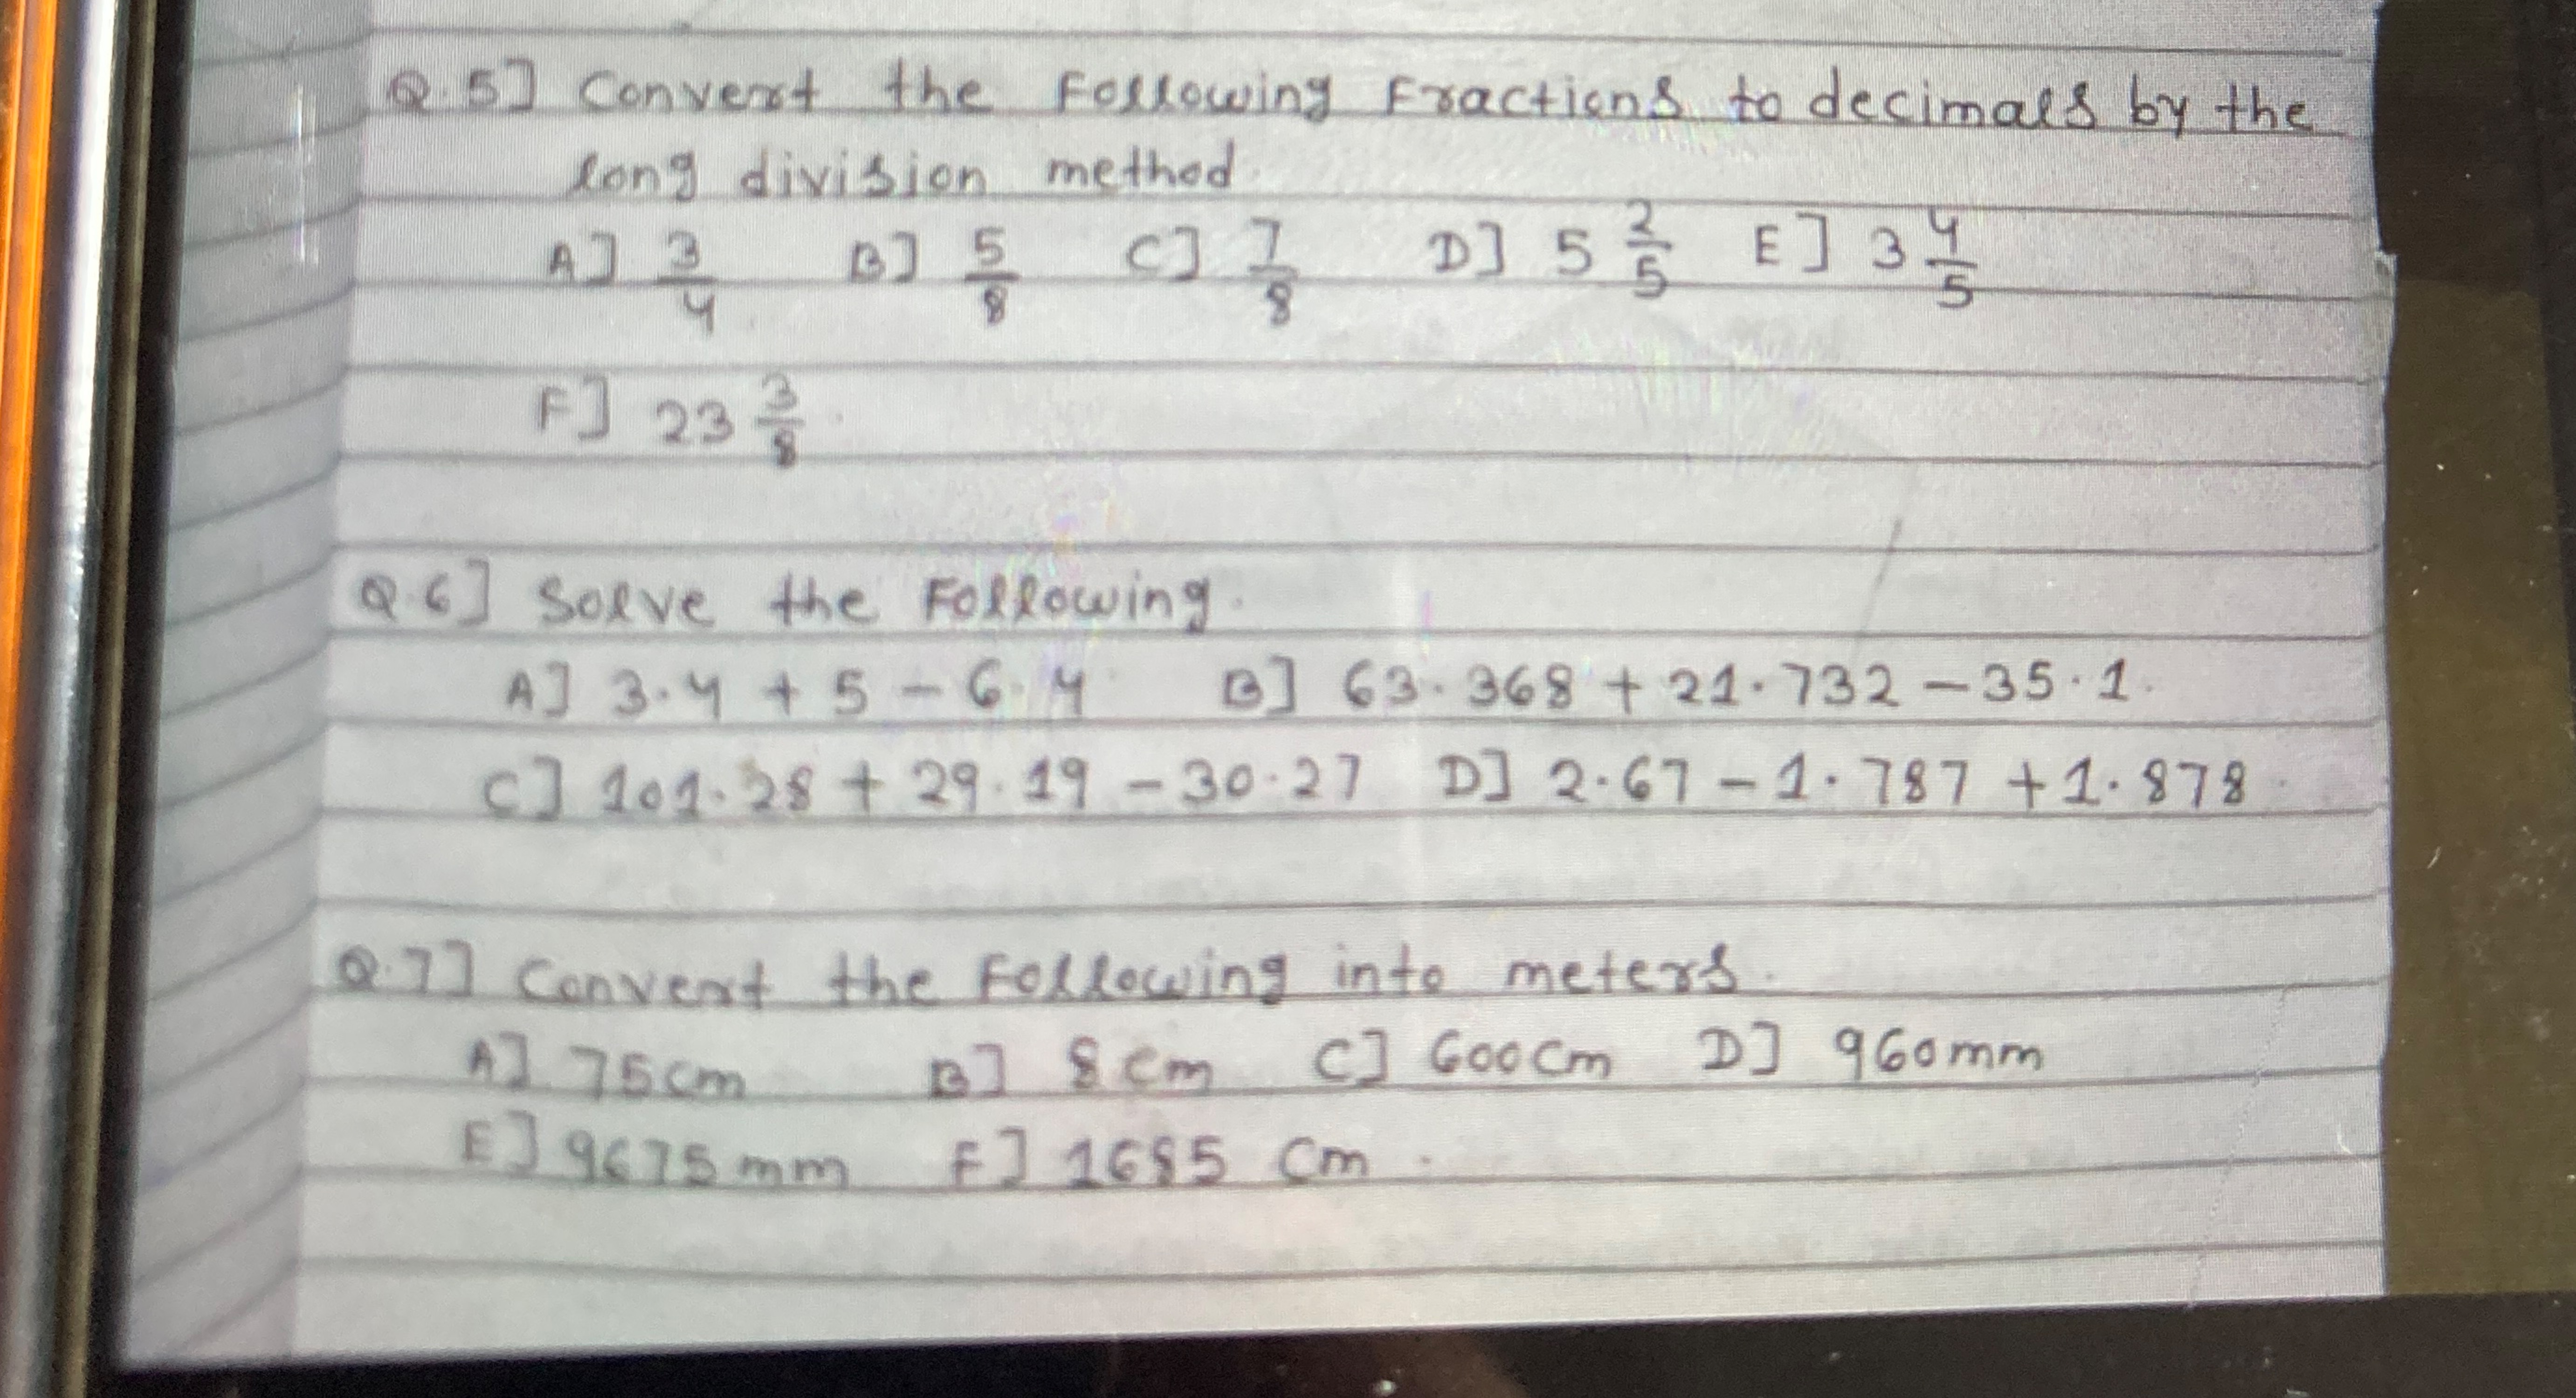 Q.5] Convert the Following Fractions to decimals by the
long division method.
A] 3/4 B] 5/8 C] 7/8 D] 5 2/5 E] 3 4/5
F] 23 3/8
Q.6] Solve the Following.
A] 3.4 + 5 - 6.4 B] 63.368 + 21.732 - 35.1.
C] 101.28 + 29.19 - 30.27 D] 2.67 - 1.787 + 1.878.
Q.7] Convert the Following into meters.
A] 75cm B] 8 cm C] 600cm D] 960mm
E] 9675mm F] 1685 cm.